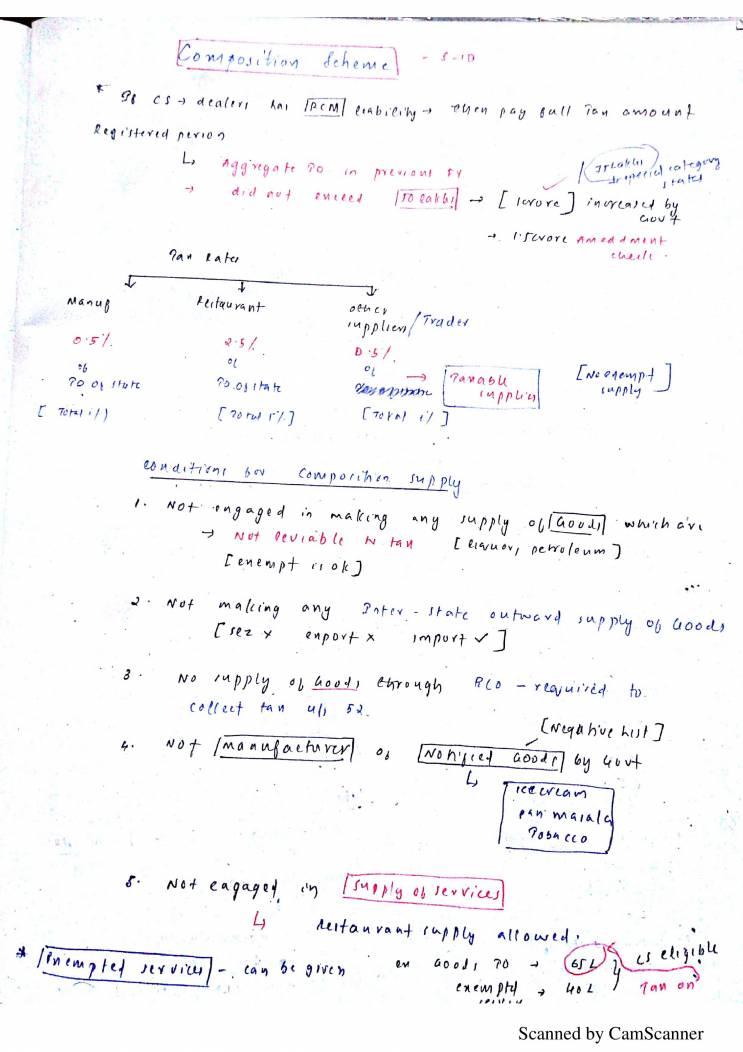 Composition Scheme - S-10
* If CS → dealers has RCM liability → then pay full Tax amount
Registered person
↳ Aggregate TO in previous FY
→ did not exceed 50 lakhs → [1 crore] increased by Govt
75 lakhs special category states
→ 1.5 crore Amendment check.
Tax Rates
Manuf Restaurant other suppliers / Trader
0.5% 2.5% 0.5%
of of of
TO of state TO of state → Taxable supplies [No exempt supply]
[Total 1%] [Total 5%] [Total 1%]
Conditions for Composition supply
1. Not engaged in making any supply of Goods which are
→ Not leviable to tax [liquor, petroleum]
[exempt is ok]
2. Not making any Inter-state outward supply of Goods
[SEZ × export × import ✓]
3. No supply of Goods through ECO - required to
collect tax u/s 52.
[Negative list]
4. Not manufacturer of Notified Goods by Govt
↳ icecream
pan masala
Tobacco
5. Not eagaged in supply of services
↳ Restaurant supply allowed.
* Exempted services - can be given ex Goods TO → 65L } CS eligible
exempted → 40L Tax on
Scanned by CamScanner